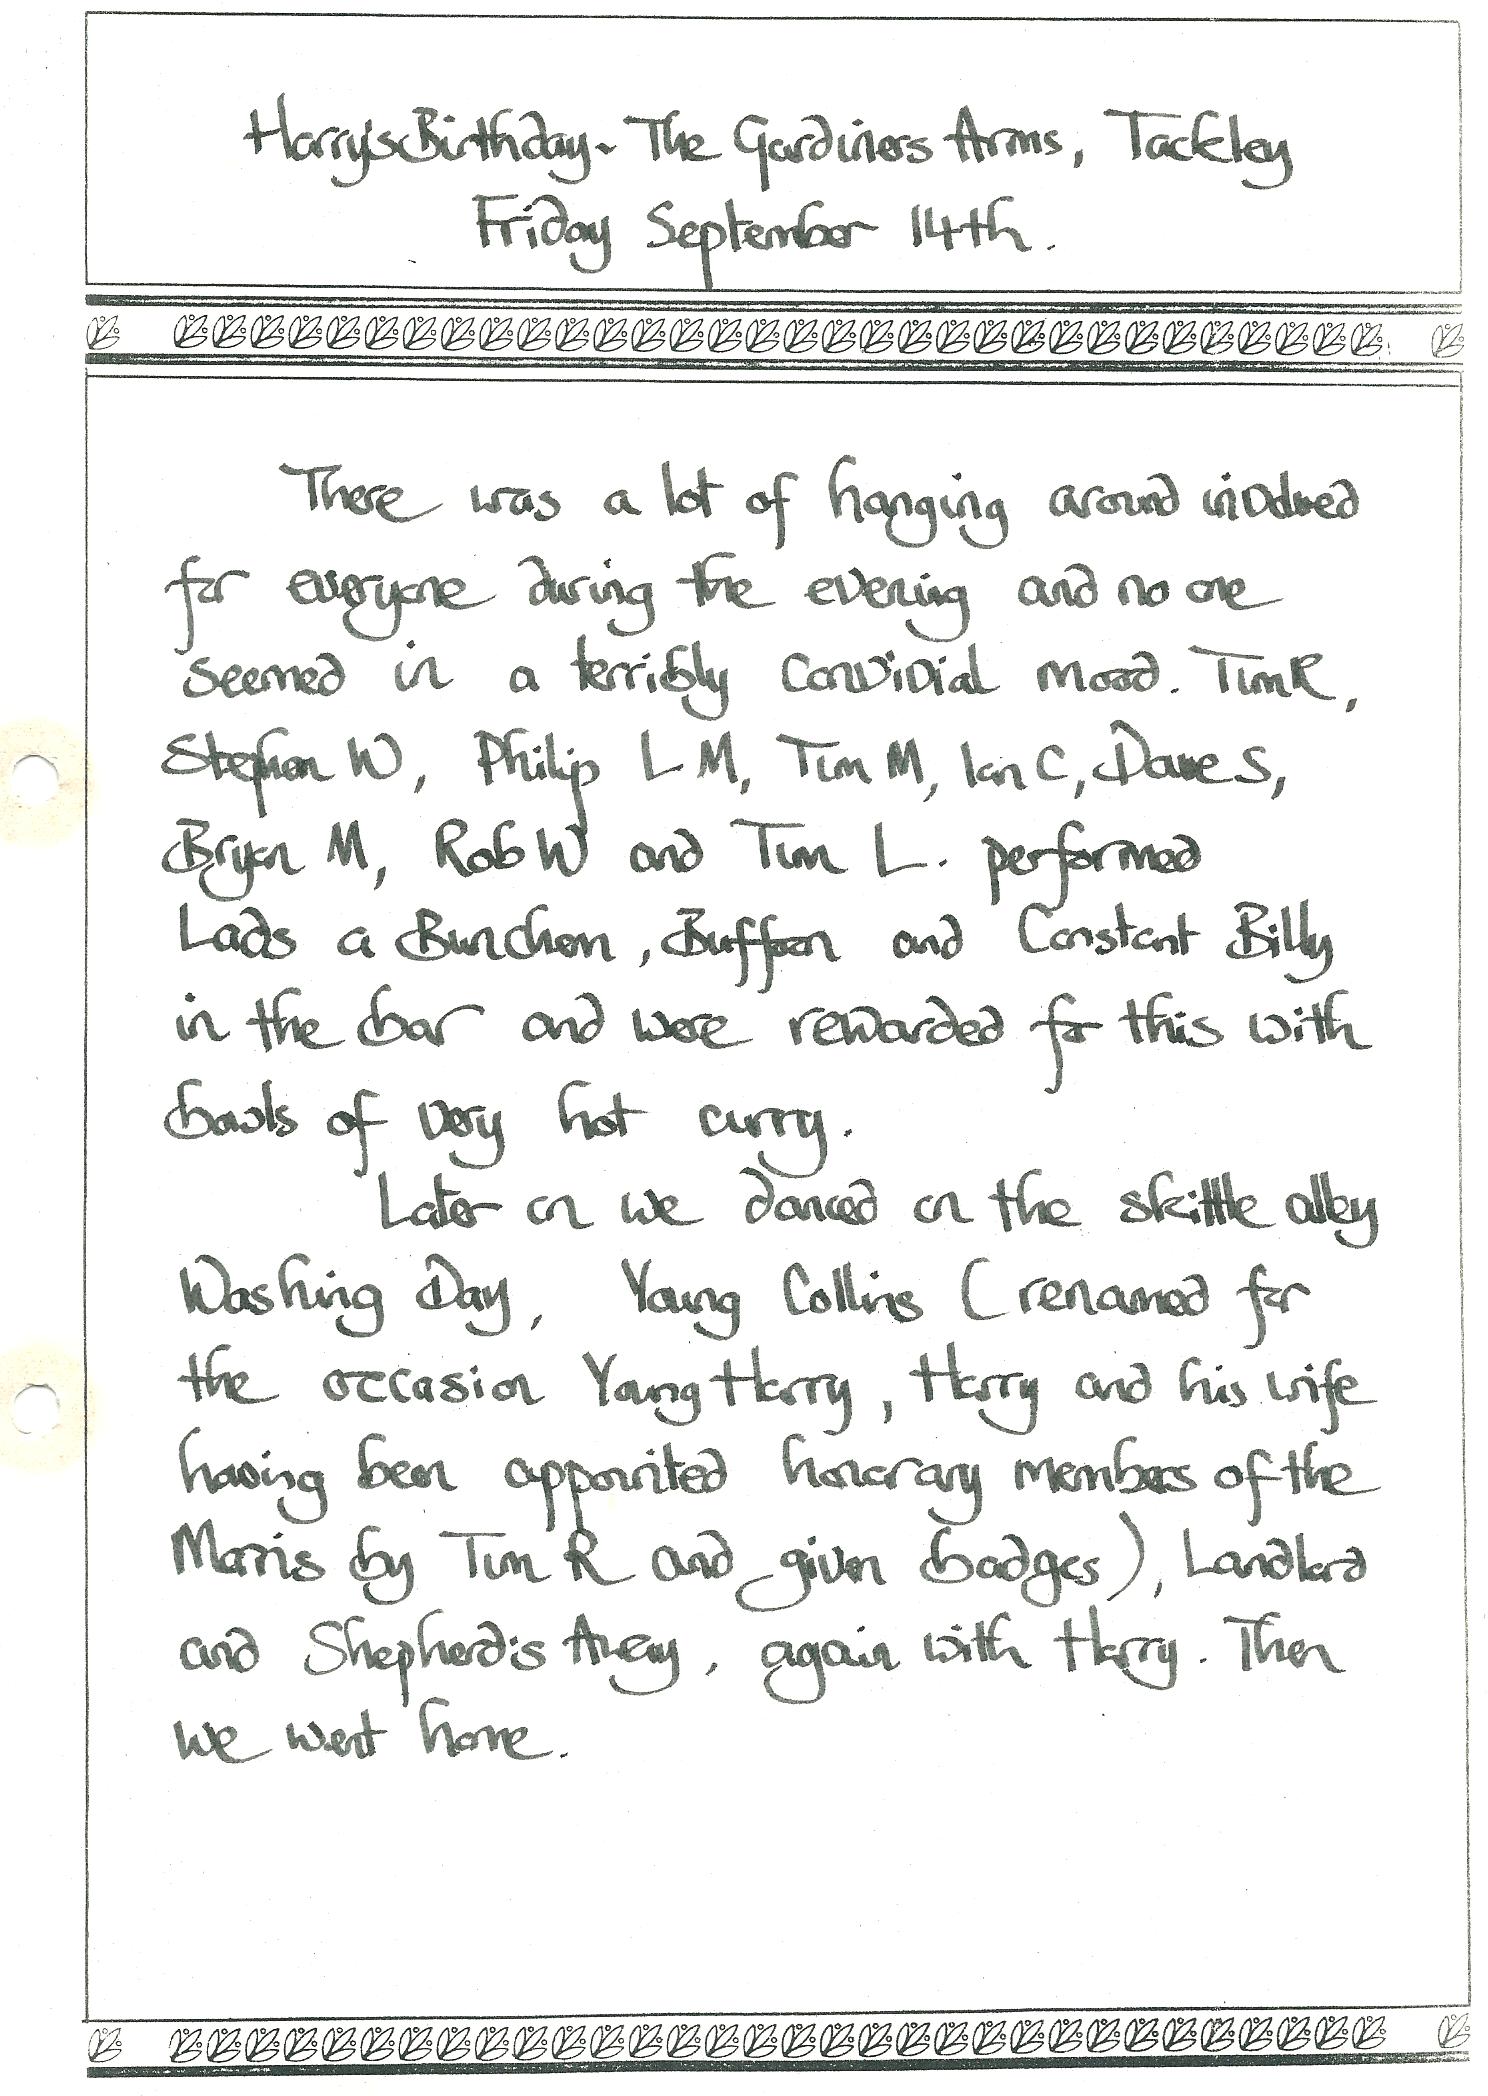 Harry's Birthday - The Gardiners Arms, Tackley
Friday September 14th.
There was a lot of hanging around involved
for everyone during the evening and no one
seemed in a terribly convivial mood. Tim R,
Stephen W, Philip L M, Tim M, Ian C, Dave S,
Bryan M, Rob W and Tim L. performed
Lads a Bunchem, Buffoon and Constant Billy
in the bar and were rewarded for this with
bowls of very hot curry.
Later on we danced on the skittle alley
Washing Day, Young Collins (renamed for
the occasion Young Harry, Harry and his wife
having been appointed honorary members of the
Morris by Tim R and given badges), Landlord
and Shepherd's Away, again with Harry. Then
we went home.